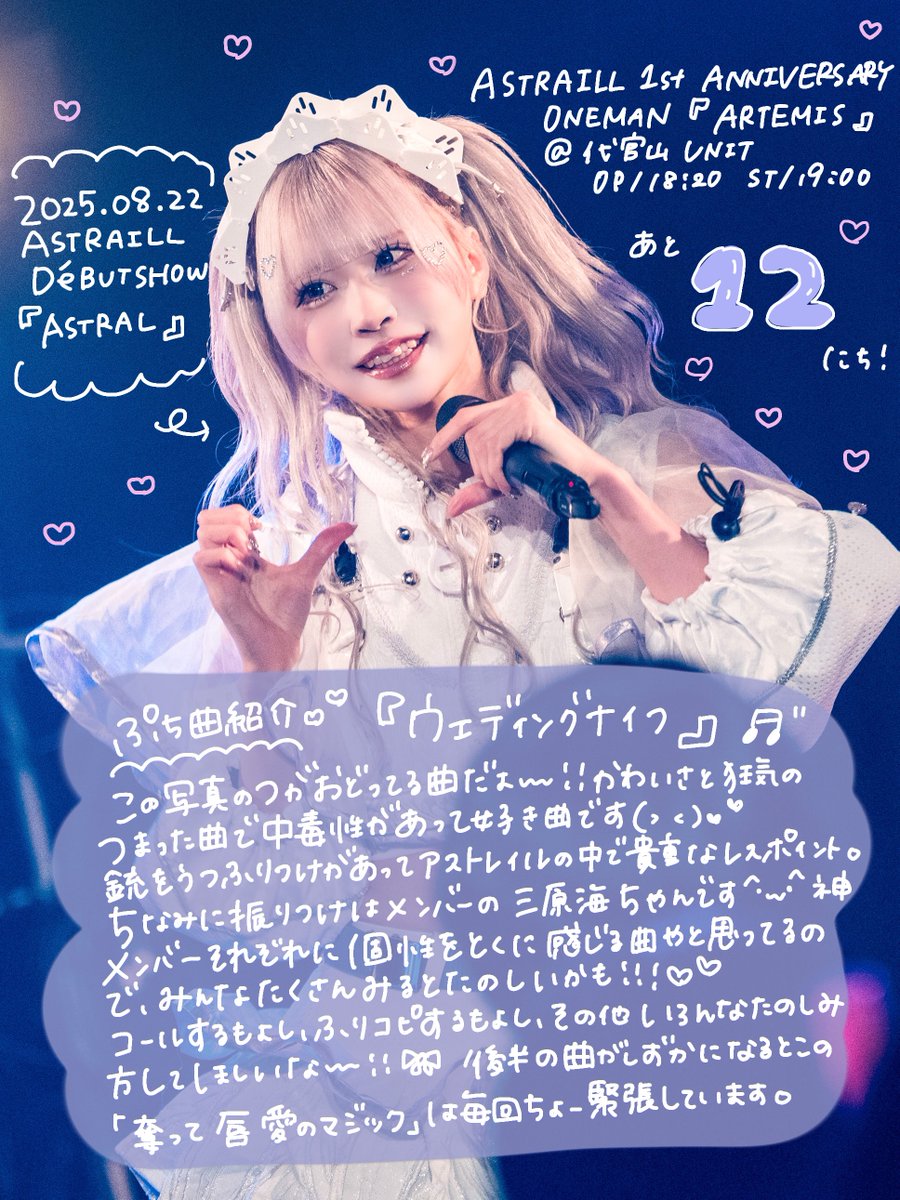 ASTRAILL 1st ANNIVERSARY
ONEMAN『ARTEMIS』
@代官山 UNIT
OP/18:20 ST/19:00
2025.08.22
ASTRAILL
DéBUTSHOW
『ASTRAL』
あと
12
にち!
ぷち曲紹介♡♡『ウェディングナイフ』♬"
この写真のつがおどってる曲だよ〜!!かわいさと狂気の
つまった曲で中毒性があって好き曲です(><)♡♡
銃をうつふりつけがあってアストレイルの中で貴重なレスポイント。
ちなみに振りつけはメンバーの三原海ちゃんです^. .^神
メンバーそれぞれに個性をとくに感じる曲やと思ってるの
で、みんなたくさんみるとたのしいかも!!!♡♡
コールするもよし、ふりコピするもよし、その他いろんなたのしみ
方してほしいな〜!! 後半の曲がしずかになるとこの
「奪って唇 愛のマジック」は毎回ちょー緊張しています。